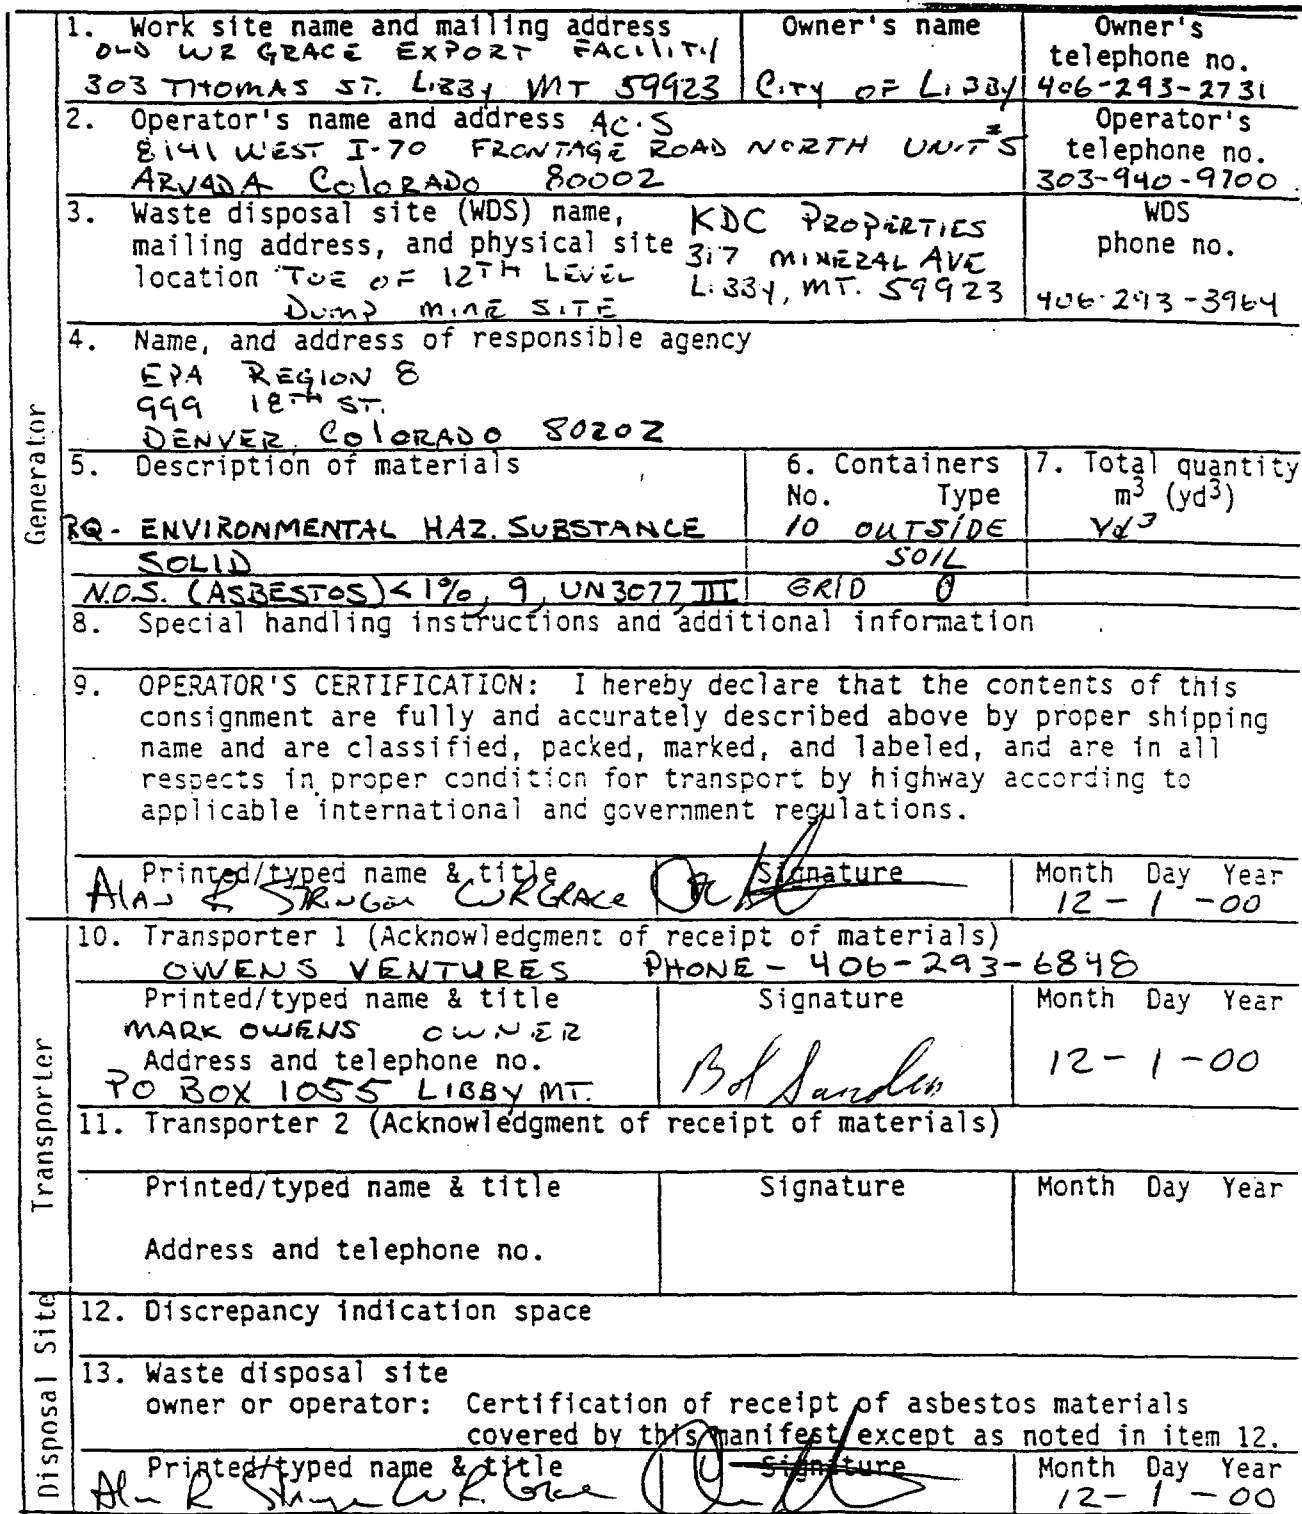 1. Work site name and mailing address
OLD WR GRACE EXPORT FACILITY
303 THOMAS ST. LIBBY MT 59923
Owner's name
CITY OF LIBBY
Owner's
telephone no.
406-293-2731
2. Operator's name and address AC.S
8141 WEST I-70 FRONTAGE ROAD NORTH UNIT #5
ARVADA COLORADO 80002
Operator's
telephone no.
303-940-9700
3. Waste disposal site (WDS) name,
mailing address, and physical site
location TOE OF 12TH LEVEL
DUMP MINE SITE
KDC PROPERTIES
317 MINERAL AVE
LIBBY, MT. 59923
WDS
phone no.
406-293-3964
Generator
4. Name, and address of responsible agency
EPA REGION 8
999 18TH ST.
DENVER, COLORADO 80202
5. Description of materials
6. Containers
No. Type
7. Total quantity
m3 (yd3)
RQ - ENVIRONMENTAL HAZ. SUBSTANCE
10 OUTSIDE
Yd3
SOLID
SOIL
N.O.S. (ASBESTOS) < 1%, 9, UN3077 III
GRID
8. Special handling instructions and additional information
9. OPERATOR'S CERTIFICATION: I hereby declare that the contents of this
consignment are fully and accurately described above by proper shipping
name and are classified, packed, marked, and labeled, and are in all
respects in proper condition for transport by highway according to
applicable international and government regulations.
Printed/typed name & title
Alan R Stringer WR GRACE
Signature
Month Day Year
12 - 1 - 00
Transporter
10. Transporter 1 (Acknowledgment of receipt of materials)
OWENS VENTURES PHONE - 406-293-6848
Printed/typed name & title
MARK OWENS OWNER
Address and telephone no.
PO BOX 1055 LIBBY MT.
Signature
Month Day Year
12 - 1 - 00
11. Transporter 2 (Acknowledgment of receipt of materials)
Printed/typed name & title
Signature
Month Day Year
Address and telephone no.
Disposal Site
12. Discrepancy indication space
13. Waste disposal site
owner or operator: Certification of receipt of asbestos materials
covered by this manifest except as noted in item 12.
Printed/typed name & title
Alan R Stringer WR Grace
Signature
Month Day Year
12 - 1 - 00